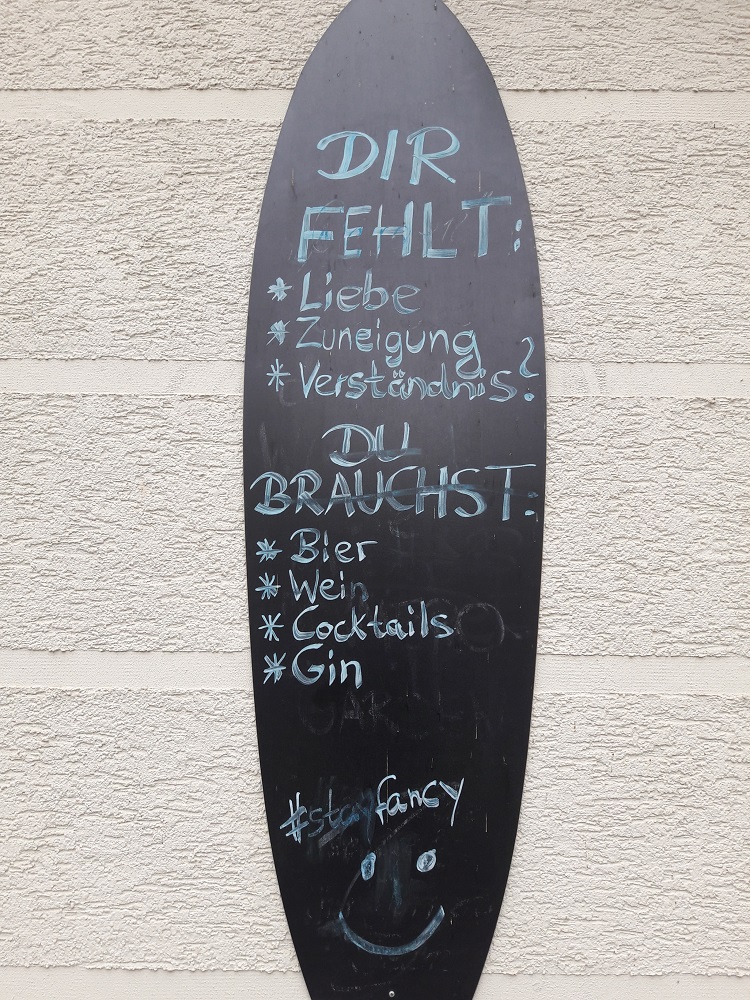 DIR
FEHLT:
* Liebe
* Zuneigung
* Verständnis?
DU
BRAUCHST:
* Bier
* Wein
* Cocktails
* Gin
GARDEN
#stayfancy